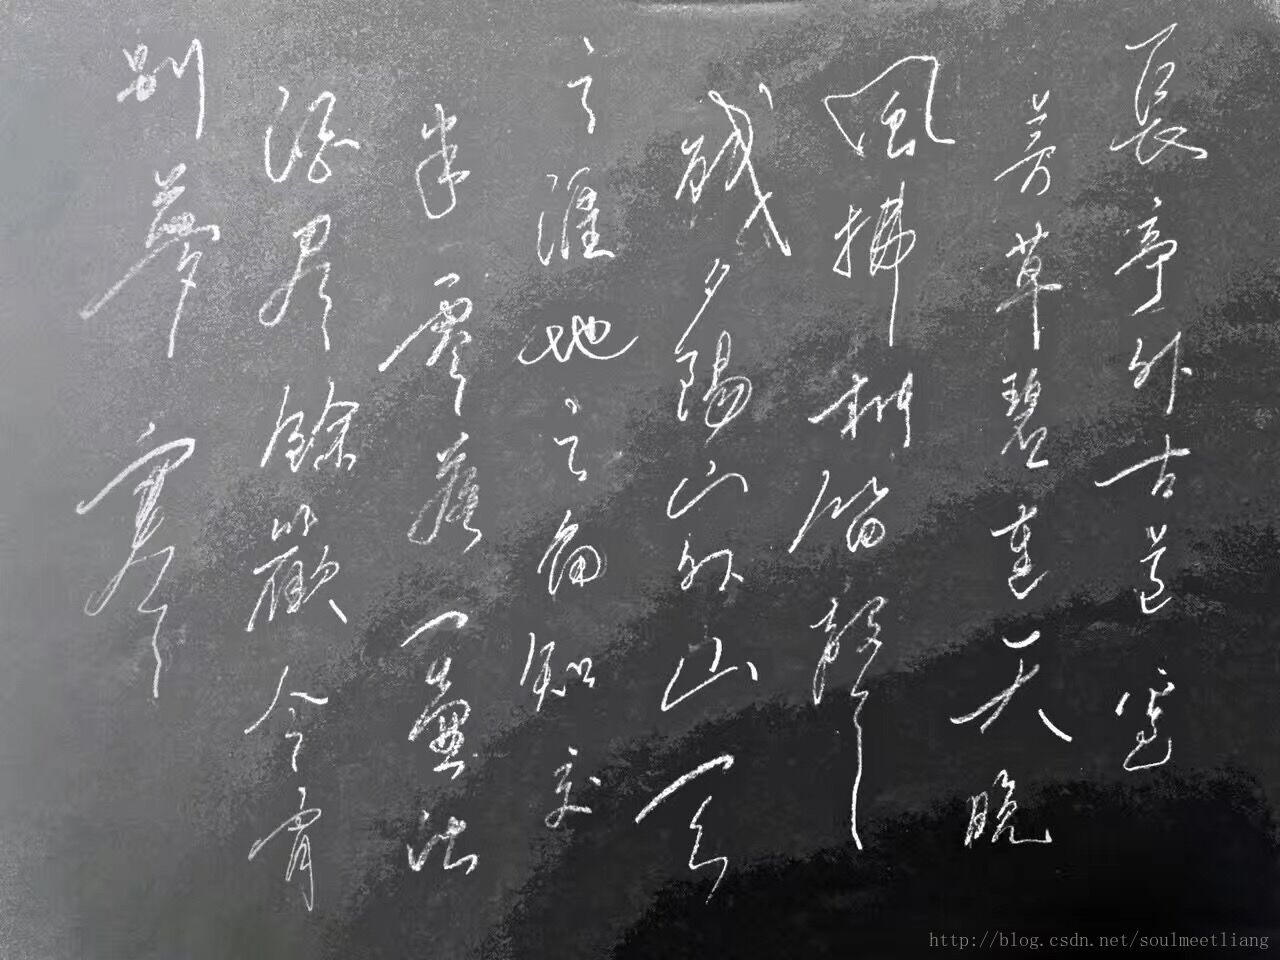 長亭外古道邊
芳草碧連天晚
風拂柳笛聲
殘夕陽山外山天
之涯地之角知交
半零落一壺浊
酒盡餘歡今宵
别夢寒
http://blog.csdn.net/soulmeetliang